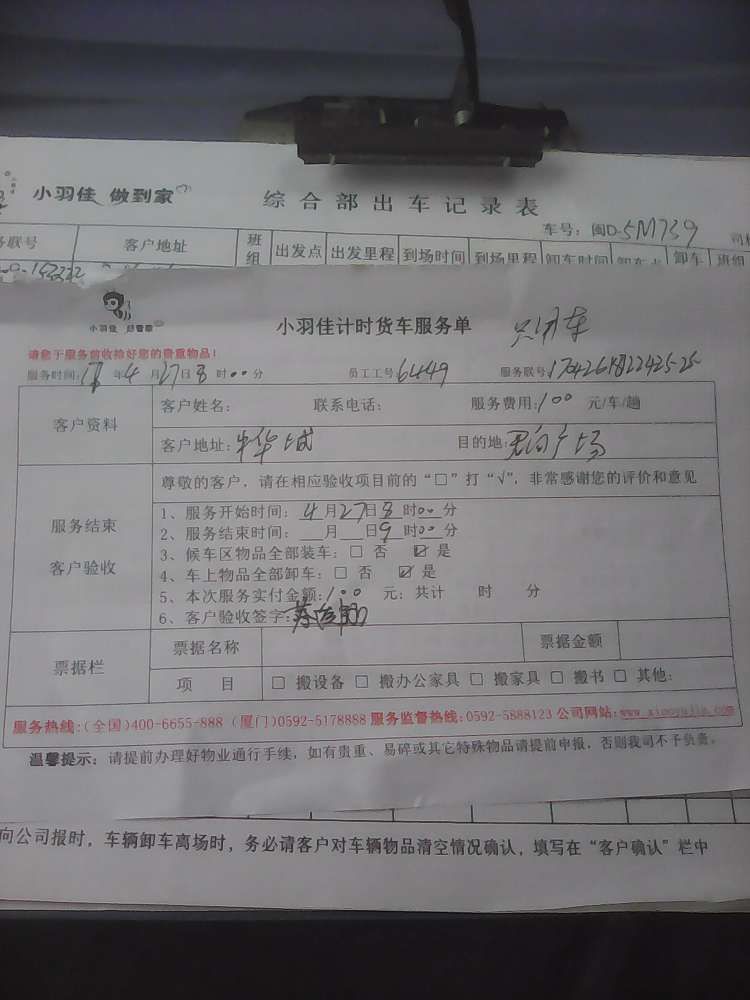 小羽佳 做到家 综合部出车记录表
车号：闽D-5M739
客户地址 班组 出发点 出发里程 到场时间 到场里程 卸车时间 卸车 班组
小羽佳 好管家
小羽佳计时货车服务单 只用车
请您于服务前收拾好您的贵重物品！
服务时间：18年4月27日8时00分 员工工号：6449 服务联号：
客户资料
客户姓名： 联系电话： 服务费用：100 元/车/趟
客户地址：中华城 目的地：
尊敬的客户，请在相应验收项目前的“□”打“√”，非常感谢您的评价和意见
服务结束
客户验收
1、服务开始时间：4月27日8时00分
2、服务结束时间：__月__日9时00分
3、候车区物品全部装车：□ 否 ☑ 是
4、车上物品全部卸车：□ 否 ☑ 是
5、本次服务实付金额：100 元；共计 时 分
6、客户验收签字：
票据栏
票据名称 票据金额
项 目 □ 搬设备 □ 搬办公家具 □ 搬家具 □ 搬书 □ 其他：
服务热线：（全国）400-6655-888（厦门）0592-5178888 服务监督热线：0592-5888123 公司网站：www.xiaoyujia.com
温馨提示：请提前办理好物业通行手续，如有贵重、易碎或其它特殊物品请提前申报，否则我司不予负责。
向公司报时，车辆卸车离场时，务必请客户对车辆物品清空情况确认，填写在“客户确认”栏中